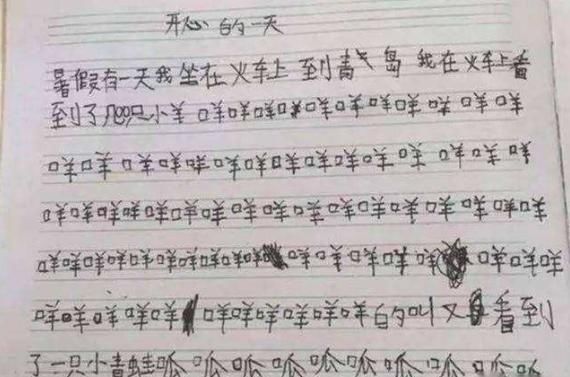 开心的一天
暑假有一天我坐在火车上到青岛我在火车上看
到了几00只小羊咩咩咩咩咩咩咩咩咩咩咩
咩咩咩咩咩咩咩咩咩咩咩咩咩咩咩
咩咩咩咩咩咩咩咩咩咩咩咩咩咩咩咩咩
咩咩咩咩咩咩咩咩咩咩咩咩咩咩咩咩咩咩
咩咩咩咩咩咩咩咩咩咩咩的叫又看到
了一只小青蛙呱呱呱呱呱呱呱呱呱呱